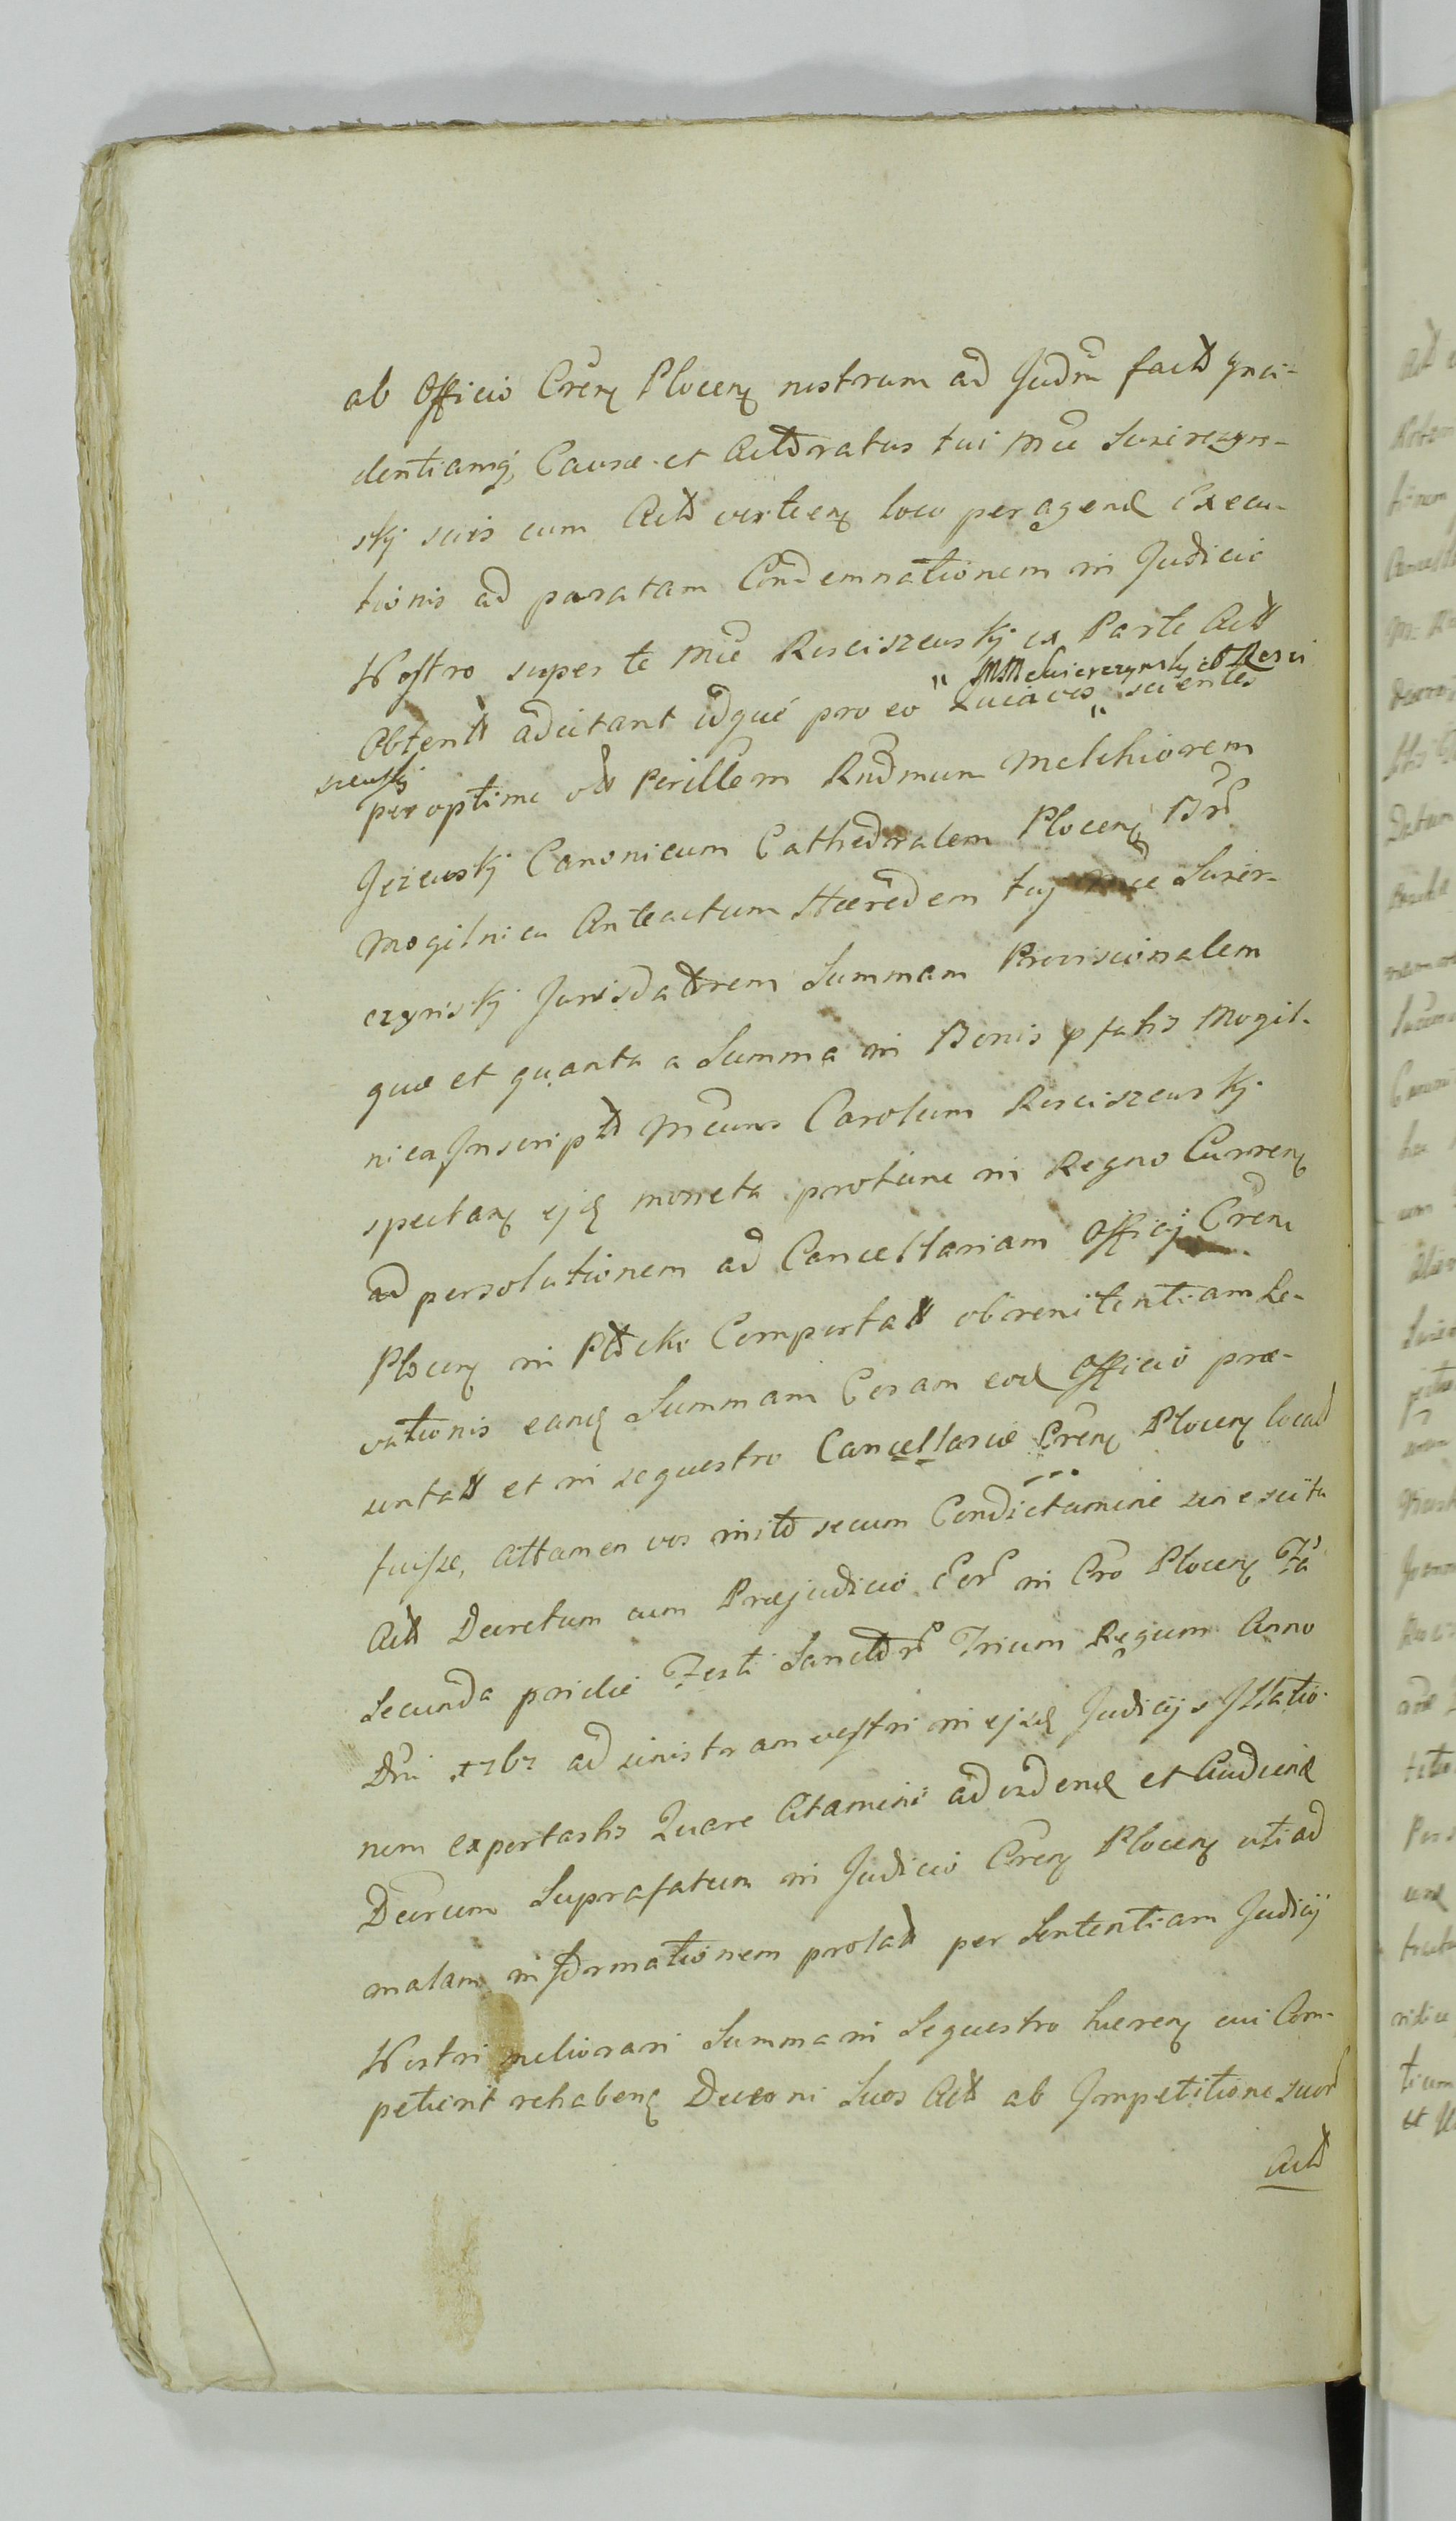 ab Officio Cren Plocen nostrum ad Judm factt Inci-
dentiamq Causæ et Acttoratus tui Mce Suxirczyn-
skj suis cum Actt verteen loco peragend Execu-
tionis ad paratam Condemnationem in Judicio
Nostro super te Mce Rosciszewskj ex Parte Actt
Obtentt adcitant idque pro eo Quia vos " MM Suxirczynsky et Rosci
szewskj " scientes
peroptime ott Perillem Rndmum Melchiorem
Jezewskj Canonicum Cathedralem Plocen Br
Mogilnica Anteactum Hæredem tuj Mce Suxir-
czynskj Jurisdattrem Summam Provisionalem
quæ et quanta a Summa in Bonis pfatis Mogil-
nica Inscriptt Mcum Carolum Rosciszewskj
spectan ejd moneta protunc in Regno Curren
ad persolutionem ad Cancellariam Officij Cren
Plocen in Pttcke Comportatt ob renitentiam Le-
vationis eand Summam Coram eod Officio præ-
sentatt et in sequestro Cancellariæ Cren Plocen locatt
fuisse, Attamen vos initt secum Condictamine sine scitu
Actt Decretum cum Præjudicio Eor in Cro Plocen Fa
Secunda pridie Festi Sancttr Trium Regum Anno
Dni 1767 ad sinistram vestri in ejsd Judicij Illatio-
nem exportastis Quare Citamini ad videnđ et Audienđ
Decrum Suprafatum in Judicio Cren Plocen uti ad
malam informationem prolatt per Sententiam Judicij
Nostri meliorari Summam in Sequestro hæren cui Com-
petierit rehaben Decerni Suos Actt ab Impetitione suor
Actt